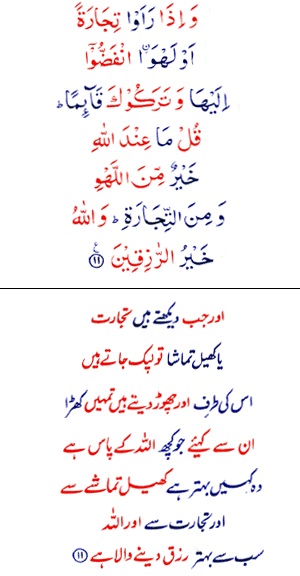 وَ اِذَا رَاَوْا تِجَارَةً
اَوْ لَهْوَا۟ ا۟نْفَضُّوْۤا
اِلَيْهَا وَ تَرَكُوْكَ قَآىِٕمًا ؕ
قُلْ مَا عِنْدَ اللّٰهِ
خَيْرٌ مِّنَ اللَّهْوِ
وَ مِنَ التِّجَارَةِ ؕ وَ اللّٰهُ
خَيْرُ الرّٰزِقِيْنَ ۧ ﴿۱۱﴾
اور جب دیکھتے ہیں تجارت
یا کھیل تماشا تو لپک جاتے ہیں
اس کی طرف اور چھوڑ دیتے ہیں تمہیں کھڑا
ان سے کہئیے جو کچھ اللہ کے پاس ہے
وہ کہیں بہتر ہے کھیل تماشے سے
اور تجارت سے اور اللہ
سب سے بہتر رزق دینے والا ہے ﴿۱۱﴾